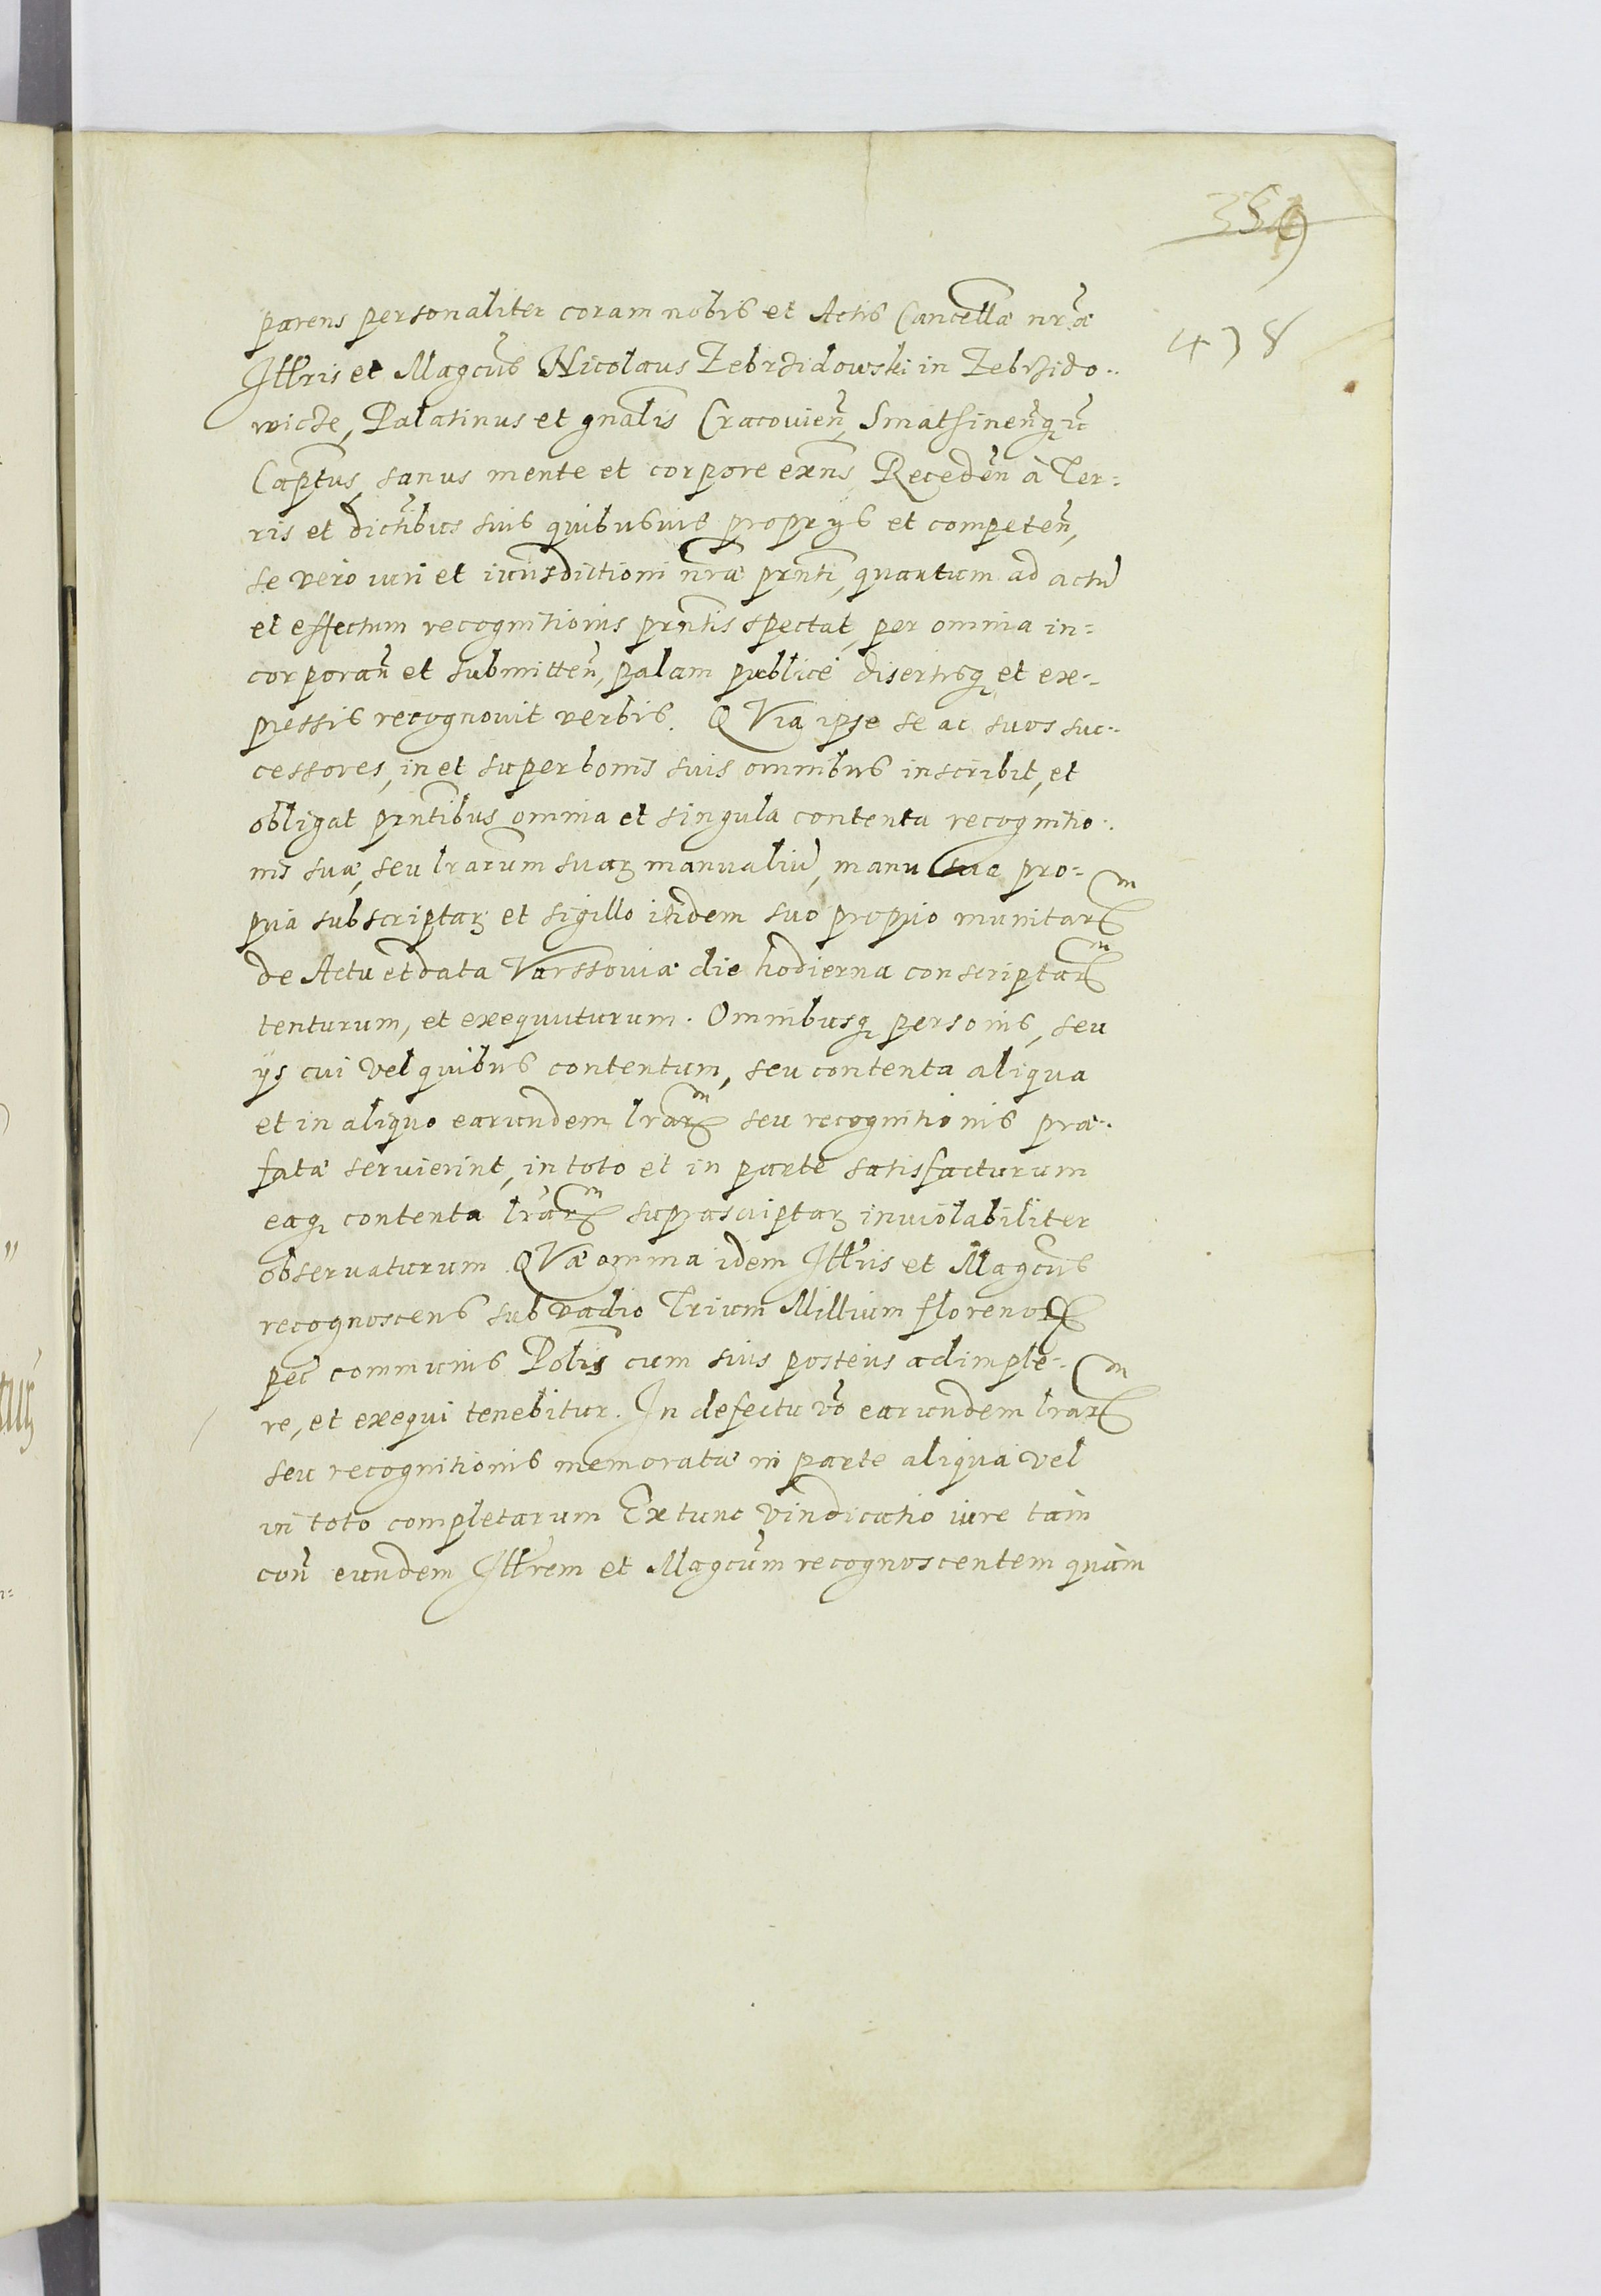 359
478
parens personaliter coram nobis et Actis Cancellæ nr̃æ
Illr̃is et Magcũs Nicolaus Zebrzidowski in Zebrzido..
wicze, Palatinus et gnãlis Cracouien̄, Smatfinen̄qȝ
Captũs, sanus mente et corpore exñs, Receden̄ à Ter=
ris et dictībus suis quibusuis proprÿs et competen̄,
se vero iuri et iurisdictioni nr̃æ prñti, quantum ad actū
et effectum recognitionis prñtis spectat, per omnia in=
corporan̄ et submitten̄, palam publicè disertisqȝ et ex=
pressis recognouit verbis. QVia ipse se ac suos suc=
cessores, in et super bonis suis omnibus inscribit, et
obligat prñtibus omnia et singula contenta recognitio..
nis suæ, seu lr̃arum suarȝ manualiū, manu sua pro=
pria subscriptarȝ et sigillo itidem suo proprio munitarꝝm
de Actu et data Varssouiæ die hodierna conscriptarꝝm
tenturum, et exequuturum. Omnibusqȝ personis, seu
ÿs cui vel quibus contentum, seu contenta aliqua
et in aliquo earundem lr̃arꝝm seu recognitionis præ.
fatæ seruierint, in toto et in parte satisfacturum
eaqȝ contenta lr̃arꝝm suprascriptarȝ inuiolabiliter
obseruaturum. QVæ omnia idem Illr̃is et Magcũs
recognoscens sub vadio Trium Millium florenorꝝ
pec̃ communis Polis̃ cum suis posteris adimple=
re, et exequi tenebitur. In defectu võ earundem lr̃arꝝm
seu recognitionis memoratæ in parte aliqua vel
in toto completarum Extunc vindicatio iure tam
con̄ eundem Illr̃em et Magcũm recognoscentem quàm